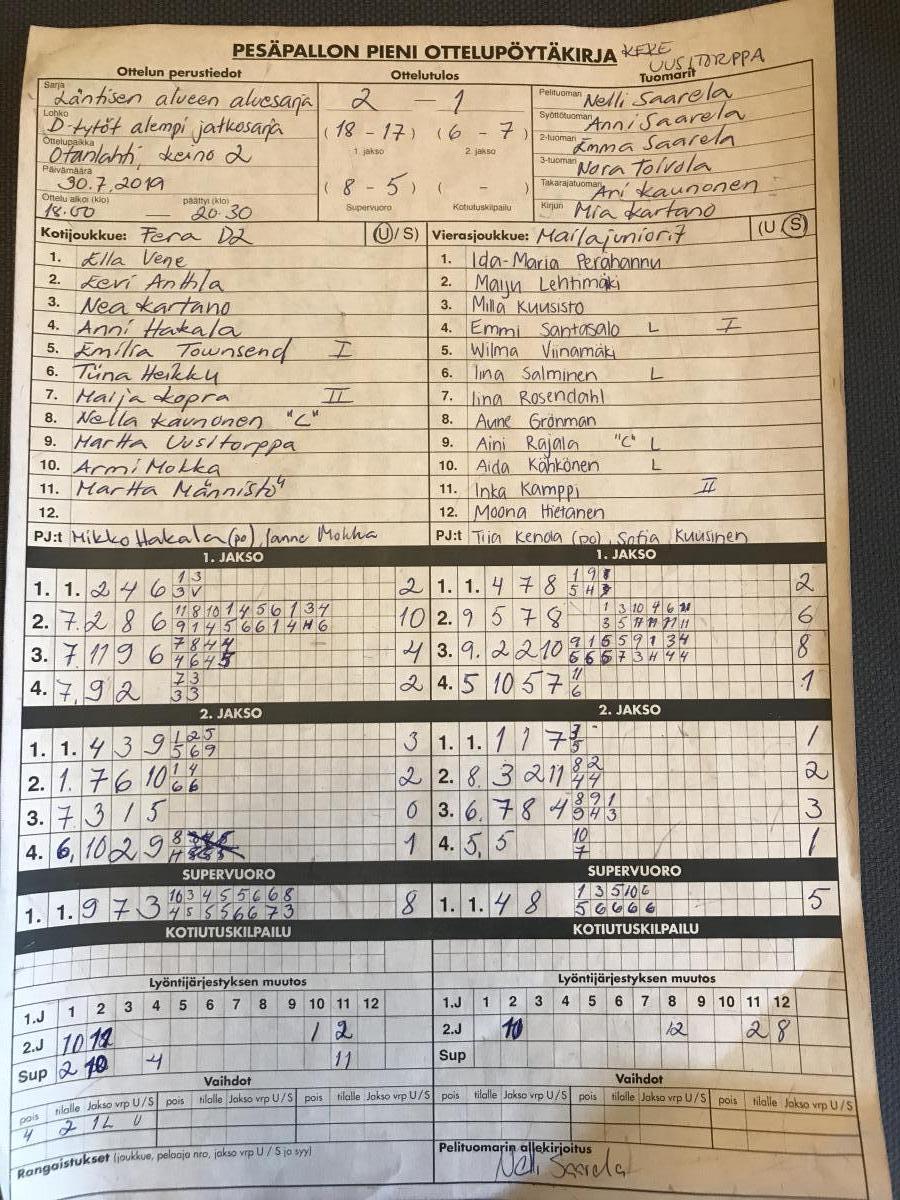 PESÄPALLON PIENI OTTELUPÖYTÄKIRJA KEKE UUSITORPPA
Ottelun perustiedot Ottelutulos Tuomarit
Sarja Läntisen alueen aluesarja
Lohko D-tytöt alempi jatkosarja
Ottelupaikka Otanlahti, keino 2
Päivämäärä 30.7.2019
Ottelu alkoi (klo) päättyi (klo)
18.00 — 20.30
2 - 1
(18 - 17) (6 - 7)
1. jakso 2. jakso
(8 - 5) ( - )
Supervuoro Kotiutuskilpailu
Pelituomari Nelli Saarela
Syöttötuomari Anni Saarela
2-tuomari Emma Saarela
3-tuomari Nora Toivola
Takarajatuomari Ari Kaunonen
Kirjuri Mia Kartano
Kotijoukkue: Fera D2 (U/S)
1. Ella Vene
2. Eevi Anttla
3. Nea Kartano
4. Anni Hakala
5. Emilia Townsend I
6. Tiina Heikku
7. Maija Kopra II
8. Nella Kaunonen "C"
9. Martta Uusitorppa
10. Armi Mokka
11. Martta Männistö
12.
PJ:t Mikko Hakala (po), Janne Mokka
Vierasjoukkue: Mailajuniorit (U S)
1. Ida-Maria Perähannu
2. Maiju Lehtimäki
3. Milla Kuusisto
4. Emmi Santasalo L I
5. Wilma Viinamäki
6. Iina Salminen L
7. Iina Rosendahl
8. Aune Grönman
9. Aini Rajala "C" L
10. Aida Kähkönen L
11. Inka Kamppi II
12. Moona Hietanen
PJ:t Tiia Kenola (po), Sofia Kuusinen
1. JAKSO
1. 1. 2 4 6 1 3 3 V 2
2. 7. 2 8 6 11 8 10 1 4 5 6 1 3 4 9 1 4 5 6 6 1 4 6 10
3. 7 11 9 6 7 8 4 4 4 6 4 5 4
4. 7, 9 2 7 3 3 3 2
2. JAKSO
1. 1. 4 3 9 1 2 5 5 6 9 3
2. 1. 7 6 10 1 4 6 6 2
3. 7 3 1 5 0
4. 6, 10 2 9 8 1
SUPERVUORO
1. 1. 9 7 3 10 3 4 5 5 6 6 8 4 5 5 5 6 6 7 3 8
KOTIUTUSKILPAILU
1. JAKSO
1. 1. 4 7 8 1 9 5 2
2. 9 5 7 8 1 3 10 4 6 11 3 5 11 11 11 11 6
3. 9. 2 2 10 9 1 5 5 9 1 3 4 6 6 5 7 3 4 4 8
4. 5 10 5 7 11 6 1
2. JAKSO
1. 1. 1 1 7 5 1
2. 8. 3 2 11 8 2 4 4 2
3. 6. 7 8 4 8 9 1 9 4 3 3
4. 5, 5 10 7 1
SUPERVUORO
1. 1. 4 8 1 3 5 10 6 5 6 6 6 6 5
KOTIUTUSKILPAILU
Lyöntijärjestyksen muutos
1.J 1 2 3 4 5 6 7 8 9 10 11 12
2.J 10 12 1 2
Sup 2 10 4 11
Vaihdot
pois tilalle Jakso vrp U / S pois tilalle Jakso vrp U / S pois tilalle Jakso vrp U / S
4 2 1L U
Rangaistukset (joukkue, pelaaja nro, jakso vrp U / S ja syy)
Lyöntijärjestyksen muutos
1.J 1 2 3 4 5 6 7 8 9 10 11 12
2.J 10 12 2 8
Sup
Vaihdot
pois tilalle Jakso vrp U / S pois tilalle Jakso vrp U / S pois tilalle Jakso vrp U / S
Pelituomarin allekirjoitus
Nelli Saarela